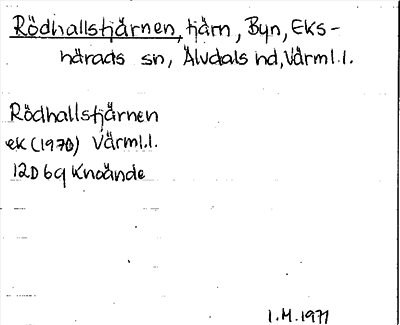 Rödhallstjärnen, tjärn, Byn, Eks-
härads sn, Älvdals hd, Värml.l.
Rödhallstjärnen
ek (1970) Värml.l.
12D 6g Knoände
I.M. 1971